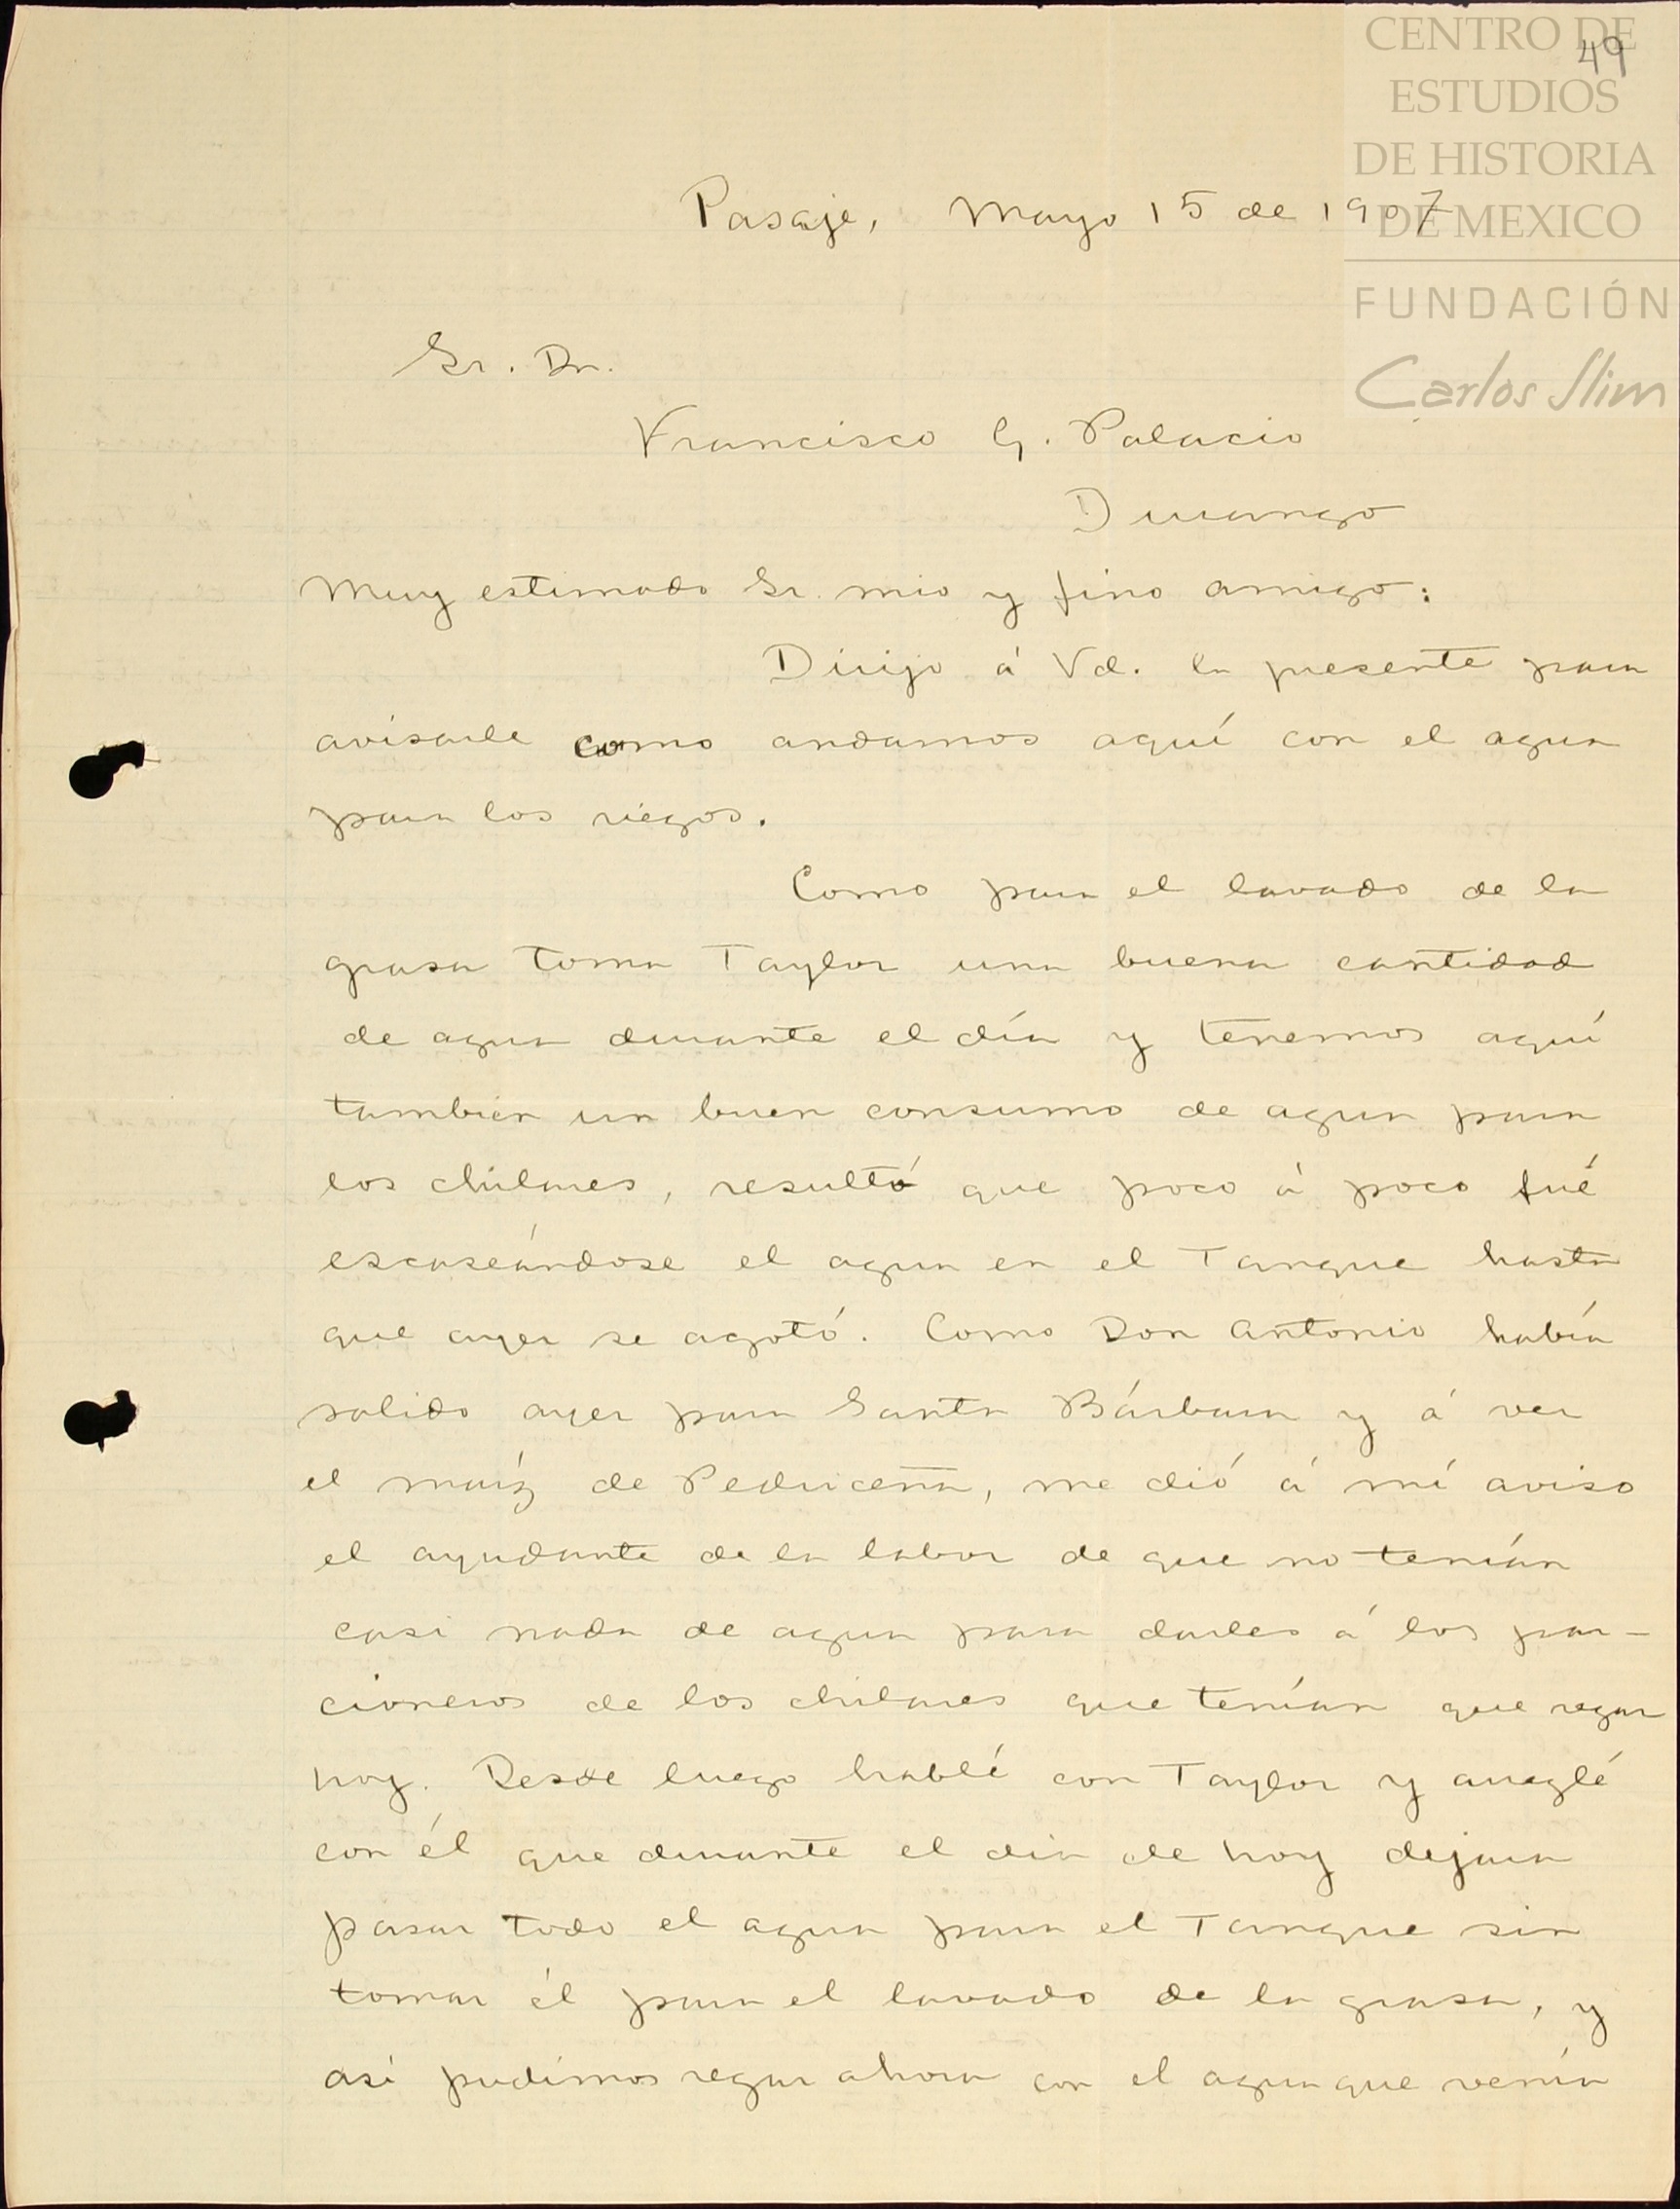 CENTRO DE
ESTUDIOS
DE HISTORIA
DE MEXICO
FUNDACIÓN
Carlos Slim
49
Pasaje, Mayo 15 de 1907
Sr. Dr.
Francisco G. Palacio
Durango
Muy estimado Sr. mio y fino amigo:
Dirijo á Vd. la presente para
avisarle como andamos aquí con el agua
para los riegos.
Como para el lavado de la
grasa toma Taylor una buena cantidad
de agua durante el día y tenemos aquí
tambien un buen consumo de agua para
los chilares, resultó que poco á poco fué
escaseándose el agua en el Tanque hasta
que ayer se agotó. Como Don Antonio había
salido ayer para Santa Bárbara y á ver
el maíz de Pedriceña, me dió á mí aviso
el ayudante de la labor de que no tenían
casi nada de agua para darles á los par-
cioneros de los chilares que tenían que regar
hoy. Desde luego hablé con Taylor y arreglé
con él que durante el dia de hoy dejara
pasar todo el agua para el Tanque sin
tomar él para el lavado de la grasa, y
así pudimos regar ahora con el agua que venía